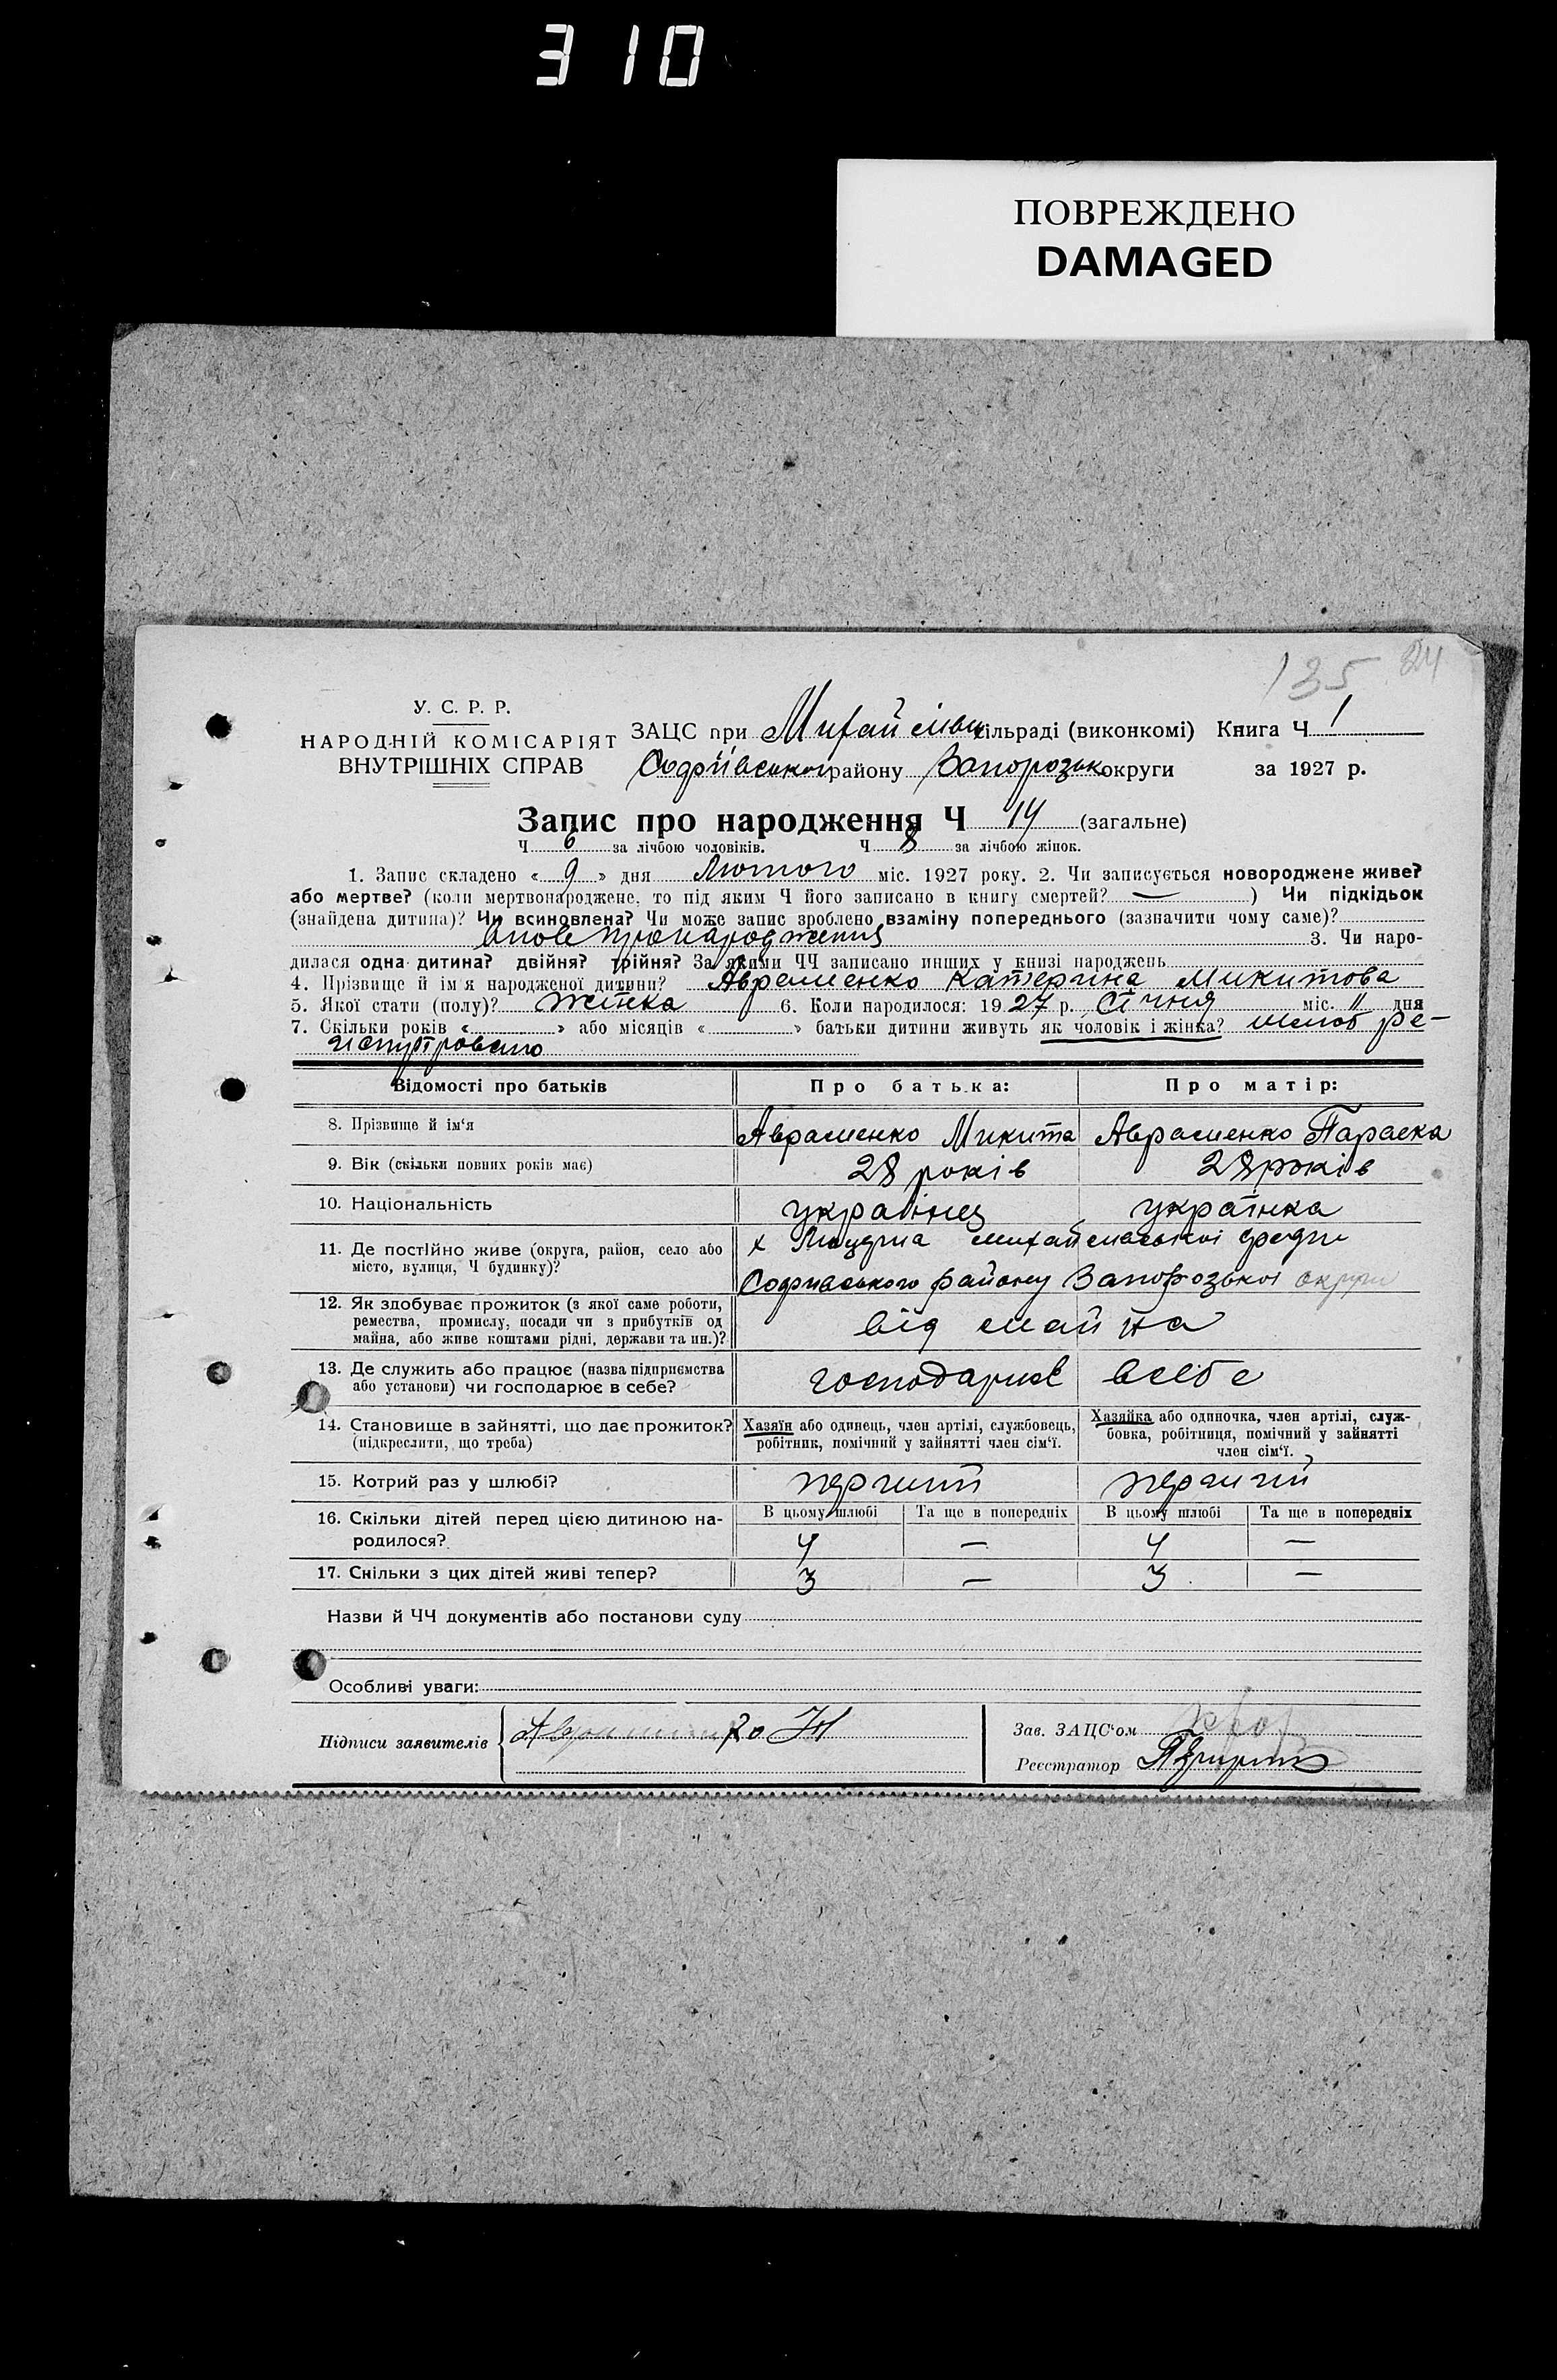 310
ПОВРЕЖДЕНО
DAMAGED
135 24
У. С. Р. Р.
НАРОДНІЙ КОМІСАРІЯТ
ВНУТРІШНІХ СПРАВ
ЗАЦС при сільраді (виконкомі) Книга Ч 1
району Запорозьк округи за 1927 р.
Запис про народження Ч 14 (загальне)
Ч 6 за лічбою чоловіків. Ч 8 за лічбою жінок.
1. Запис складено « 9 » дня Лютого міс. 1927 року. 2. Чи записується новороджене живе?
або мертве? (коли мертвонароджене, то під яким Ч його записано в книгу смертей? — ) Чи підкідьок
(знайдена дитина)? Чи всиновлена? Чи може запис зроблено взаміну попереднього (зазначити чому саме)?
3. Чи наро-
дилася одна дитина? двійня? трійня? За якими ЧЧ записано инших у книзі народжень
4. Прізвище й ім'я народженої дитини? Авраменко Катерина Микитова
5. Якої стати (полу)? жінка 6. Коли народилося: 19 27 р. Січня міс. 11 дня
7. Скільки років « » або місяців « » батьки дитини живуть як чоловік і жінка? шлюб ре-
гистровано
Відомості про батьків Про батька: Про матір:
8. Прізвище й ім'я Авраменко Микита Авраменко Параска
9. Вік (скільки повних років має) 28 років 28 років
10. Національність українец українка
11. Де постійно живе (округа, район, село або
місто, вулиця, Ч будинку)?
х
району Запорозької округи
12. Як здобуває прожиток (з якої саме роботи,
ремества, промислу, посади чи з прибутків од
майна, або живе коштами рідні, держави та ин.)?
від майна
13. Де служить або працює (назва підприємства
або установи) чи господарює в себе?
господарює всебе
14. Становище в зайнятті, що дає прожиток?
(підкреслити, що треба)
Хазяїн або одинець, член артілі, службовець,
робітник, помічний у зайнятті член сім'ї.
Хазяйка або одиночка, член артілі, служ-
бовка, робітниця, помічний у зайнятті
член сім'ї.
15. Котрий раз у шлюбі? перший перший
16. Скільки дітей перед цією дитиною на-
родилося?
В цьому шлюбі Та ще в попередніх В цьому шлюбі Та ще в попередніх
4 — 4 —
17. Скільки з цих дітей живі тепер? 3 — 3 —
Назви й ЧЧ документів або постанови суду
Особливі уваги:
Підписи заявителів
Зав. ЗАЦС'ом
Реєстратор